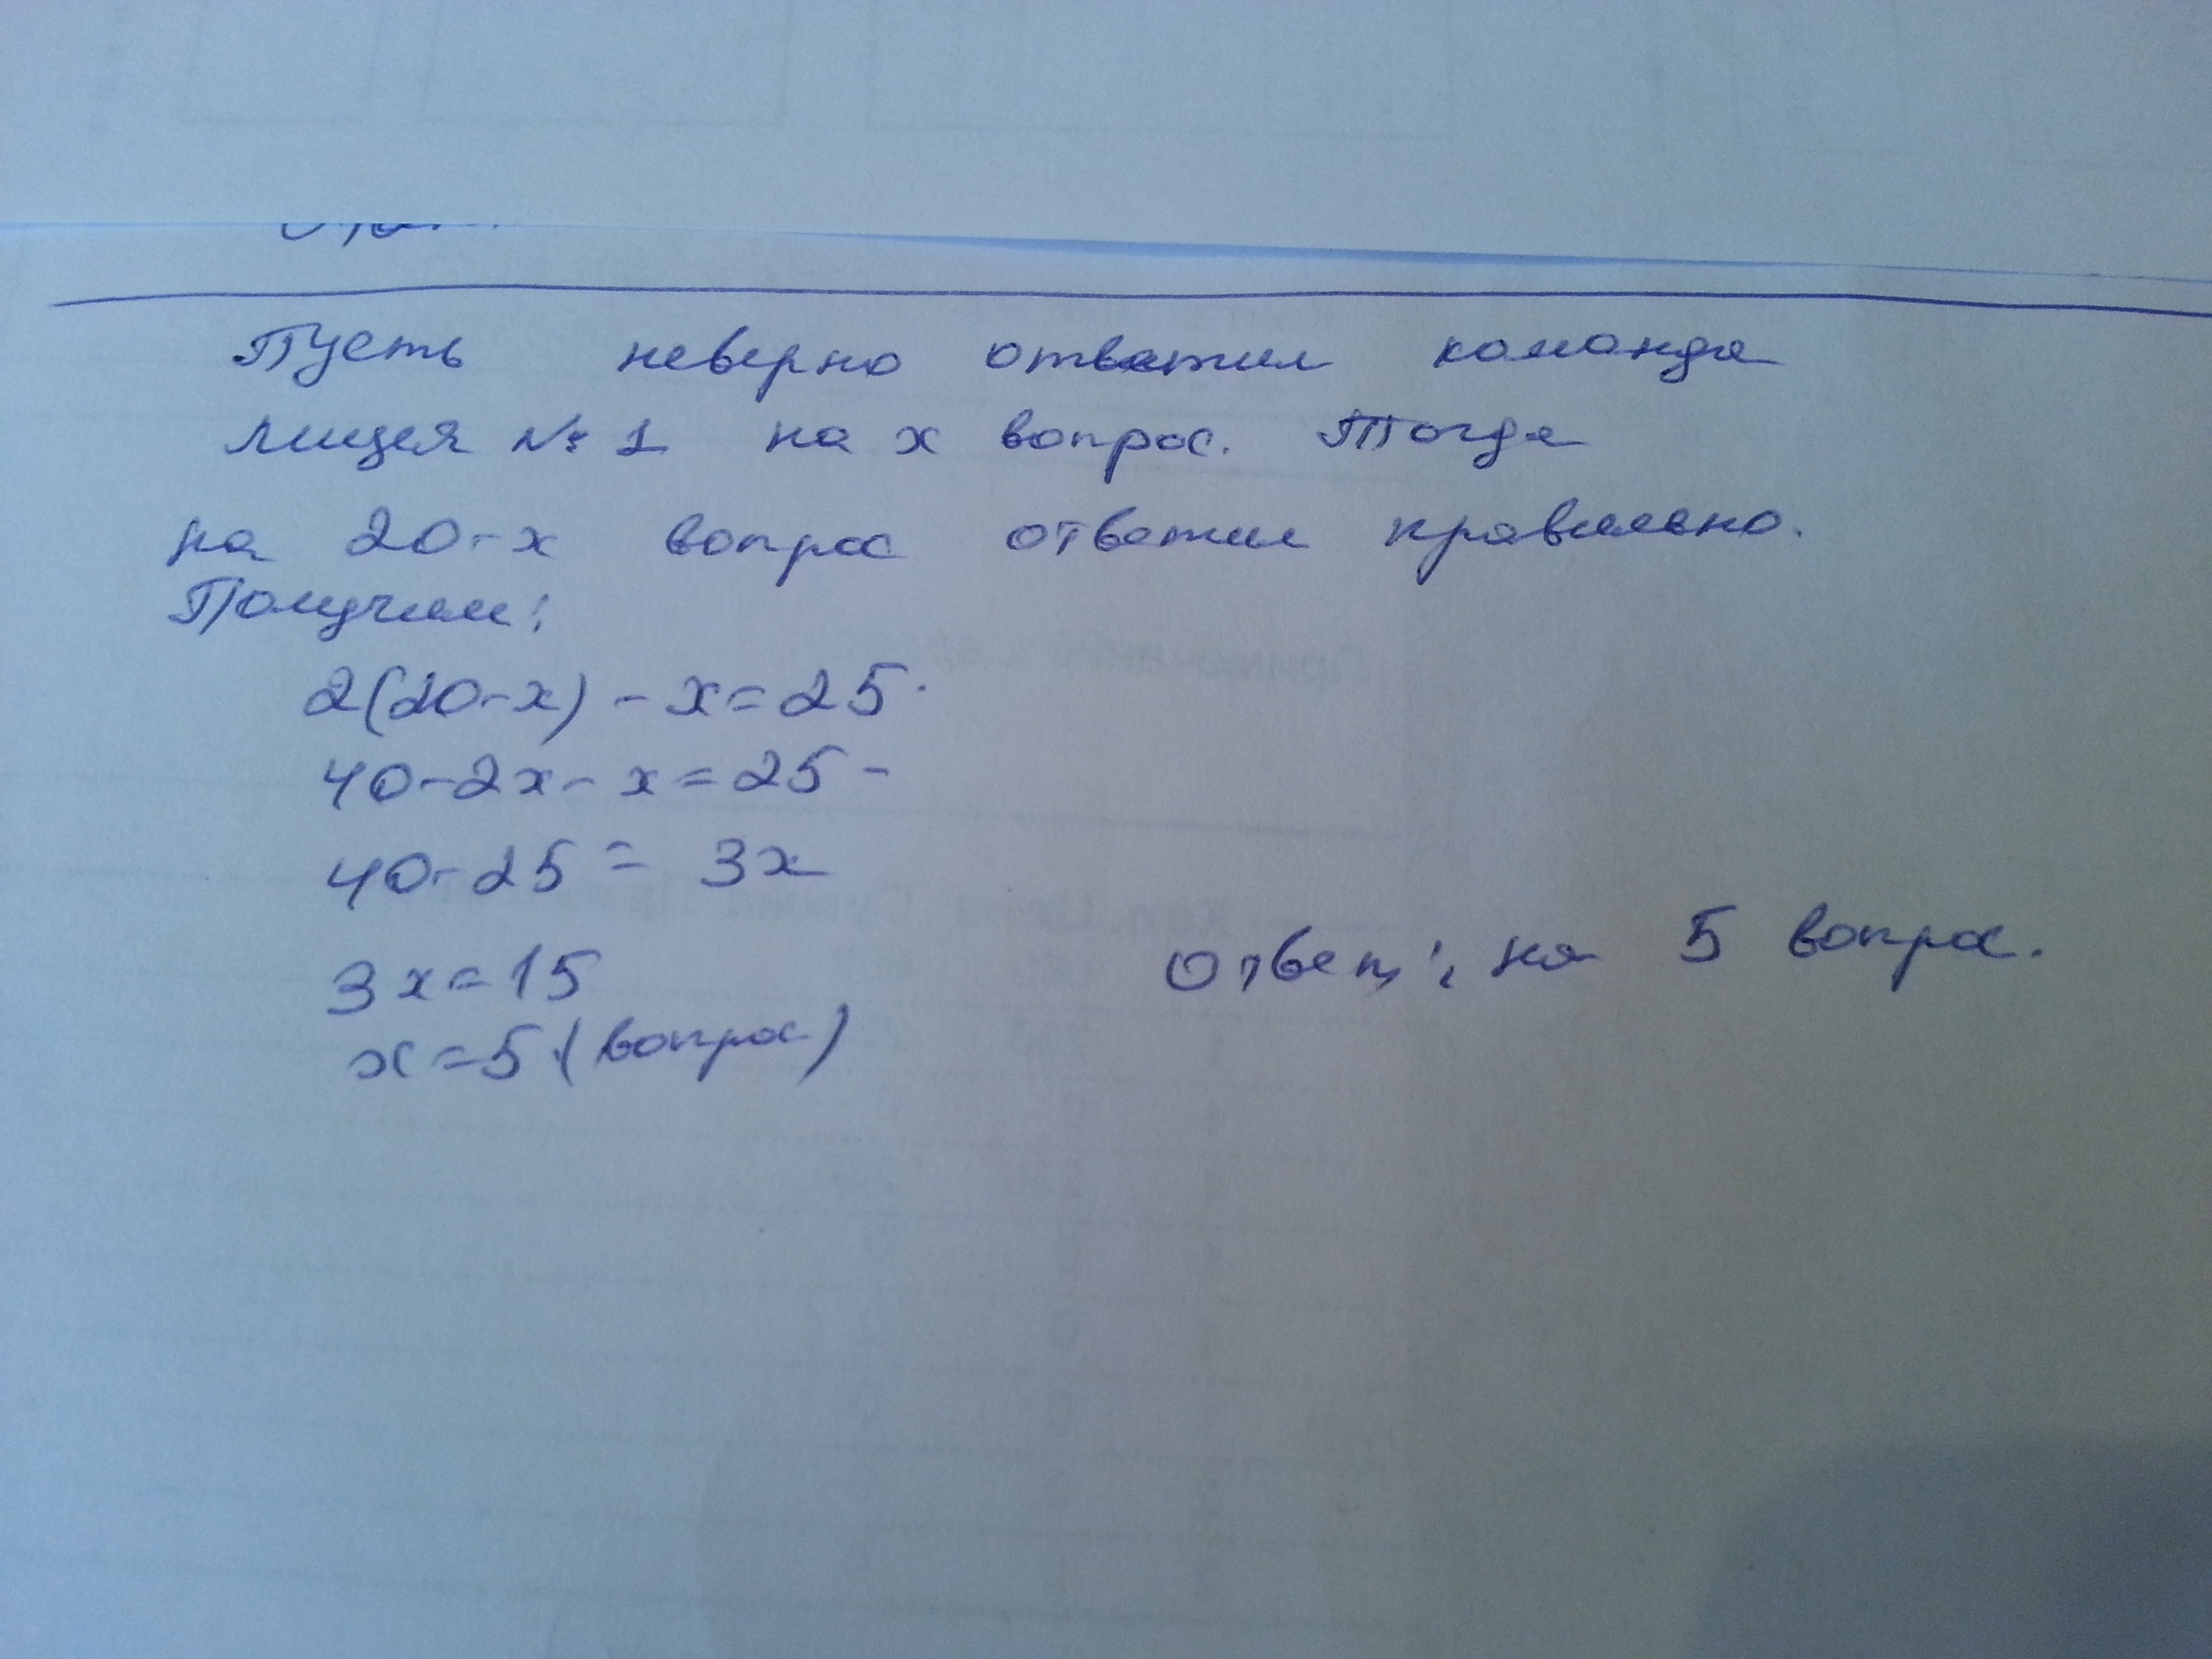 Пусть неверно ответил команда
лицея № 1 на x вопрос. Тогда
на 20-x вопрос ответил правильно.
Получим:
2(20-x) - x = 25
40-2x-x=25-
40-25 = 3x
3x=15
Ответ: на 5 вопрос.
x=5 (вопрос)